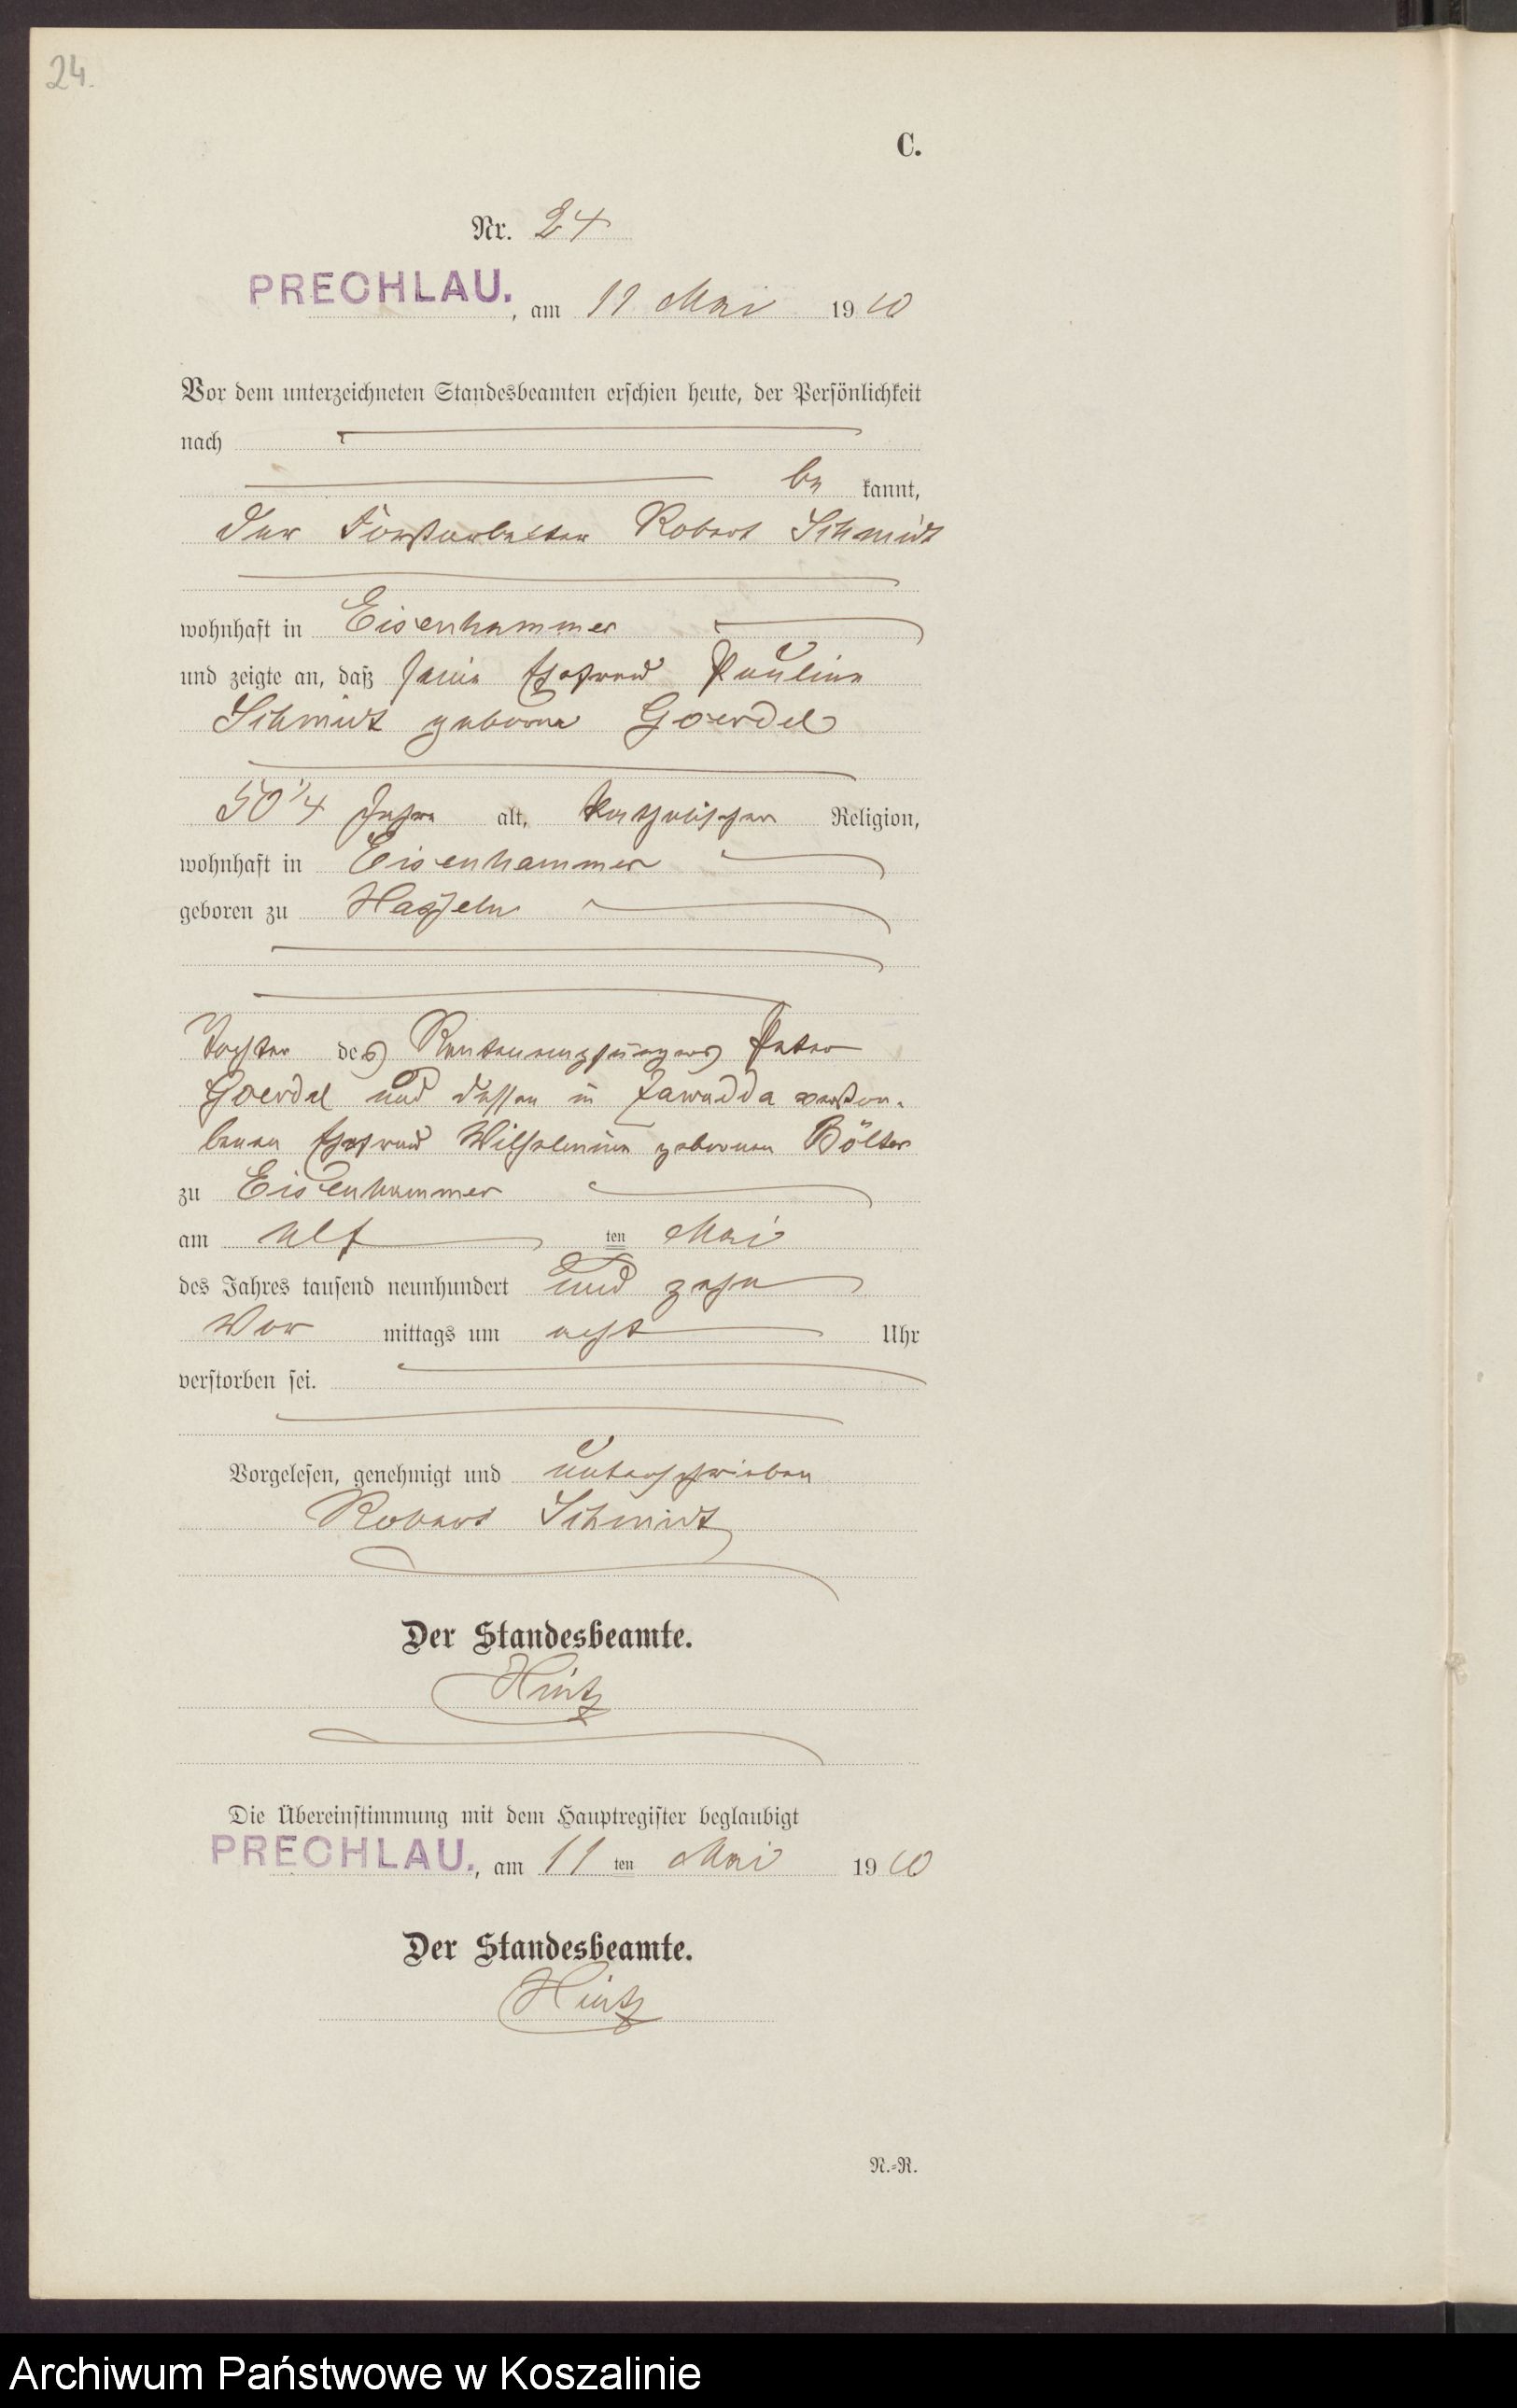 24.
C.
Nr. 24
PRECHLAU. , am 11 Mai 1910
Vor dem unterzeichneten Standesbeamten erschien heute, der Persönlichkeit
nach
be kannt,
der Forstarbeiter Robert Schmidt
wohnhaft in Eisenhammer
und zeigte an, daß seine Ehefrau Pauline
Schmidt geborne Goerdel
50 1/4 Jahre alt, katholischer Religion,
wohnhaft in Eisenhammer
geboren zu Hasseln
Tochter des Rentenempfängers Peter
Goerdel und dessen in Zawadda verstor-
benen Ehefrau Wilhelmine gebornen Bölter
zu Eisenhammer
am elf ten Mai
des Jahres tausend neunhundert und zehn
Vor mittags um acht Uhr
verstorben sei.
Vorgelesen, genehmigt und unterschrieben
Robert Schmidt
Der Standesbeamte.
Hintz
Die Übereinstimmung mit dem Hauptregister beglaubigt
PRECHLAU., am 11 ten Mai 1910
Der Standesbeamte.
Hintz
N.-R.
Archiwum Państwowe w Koszalinie